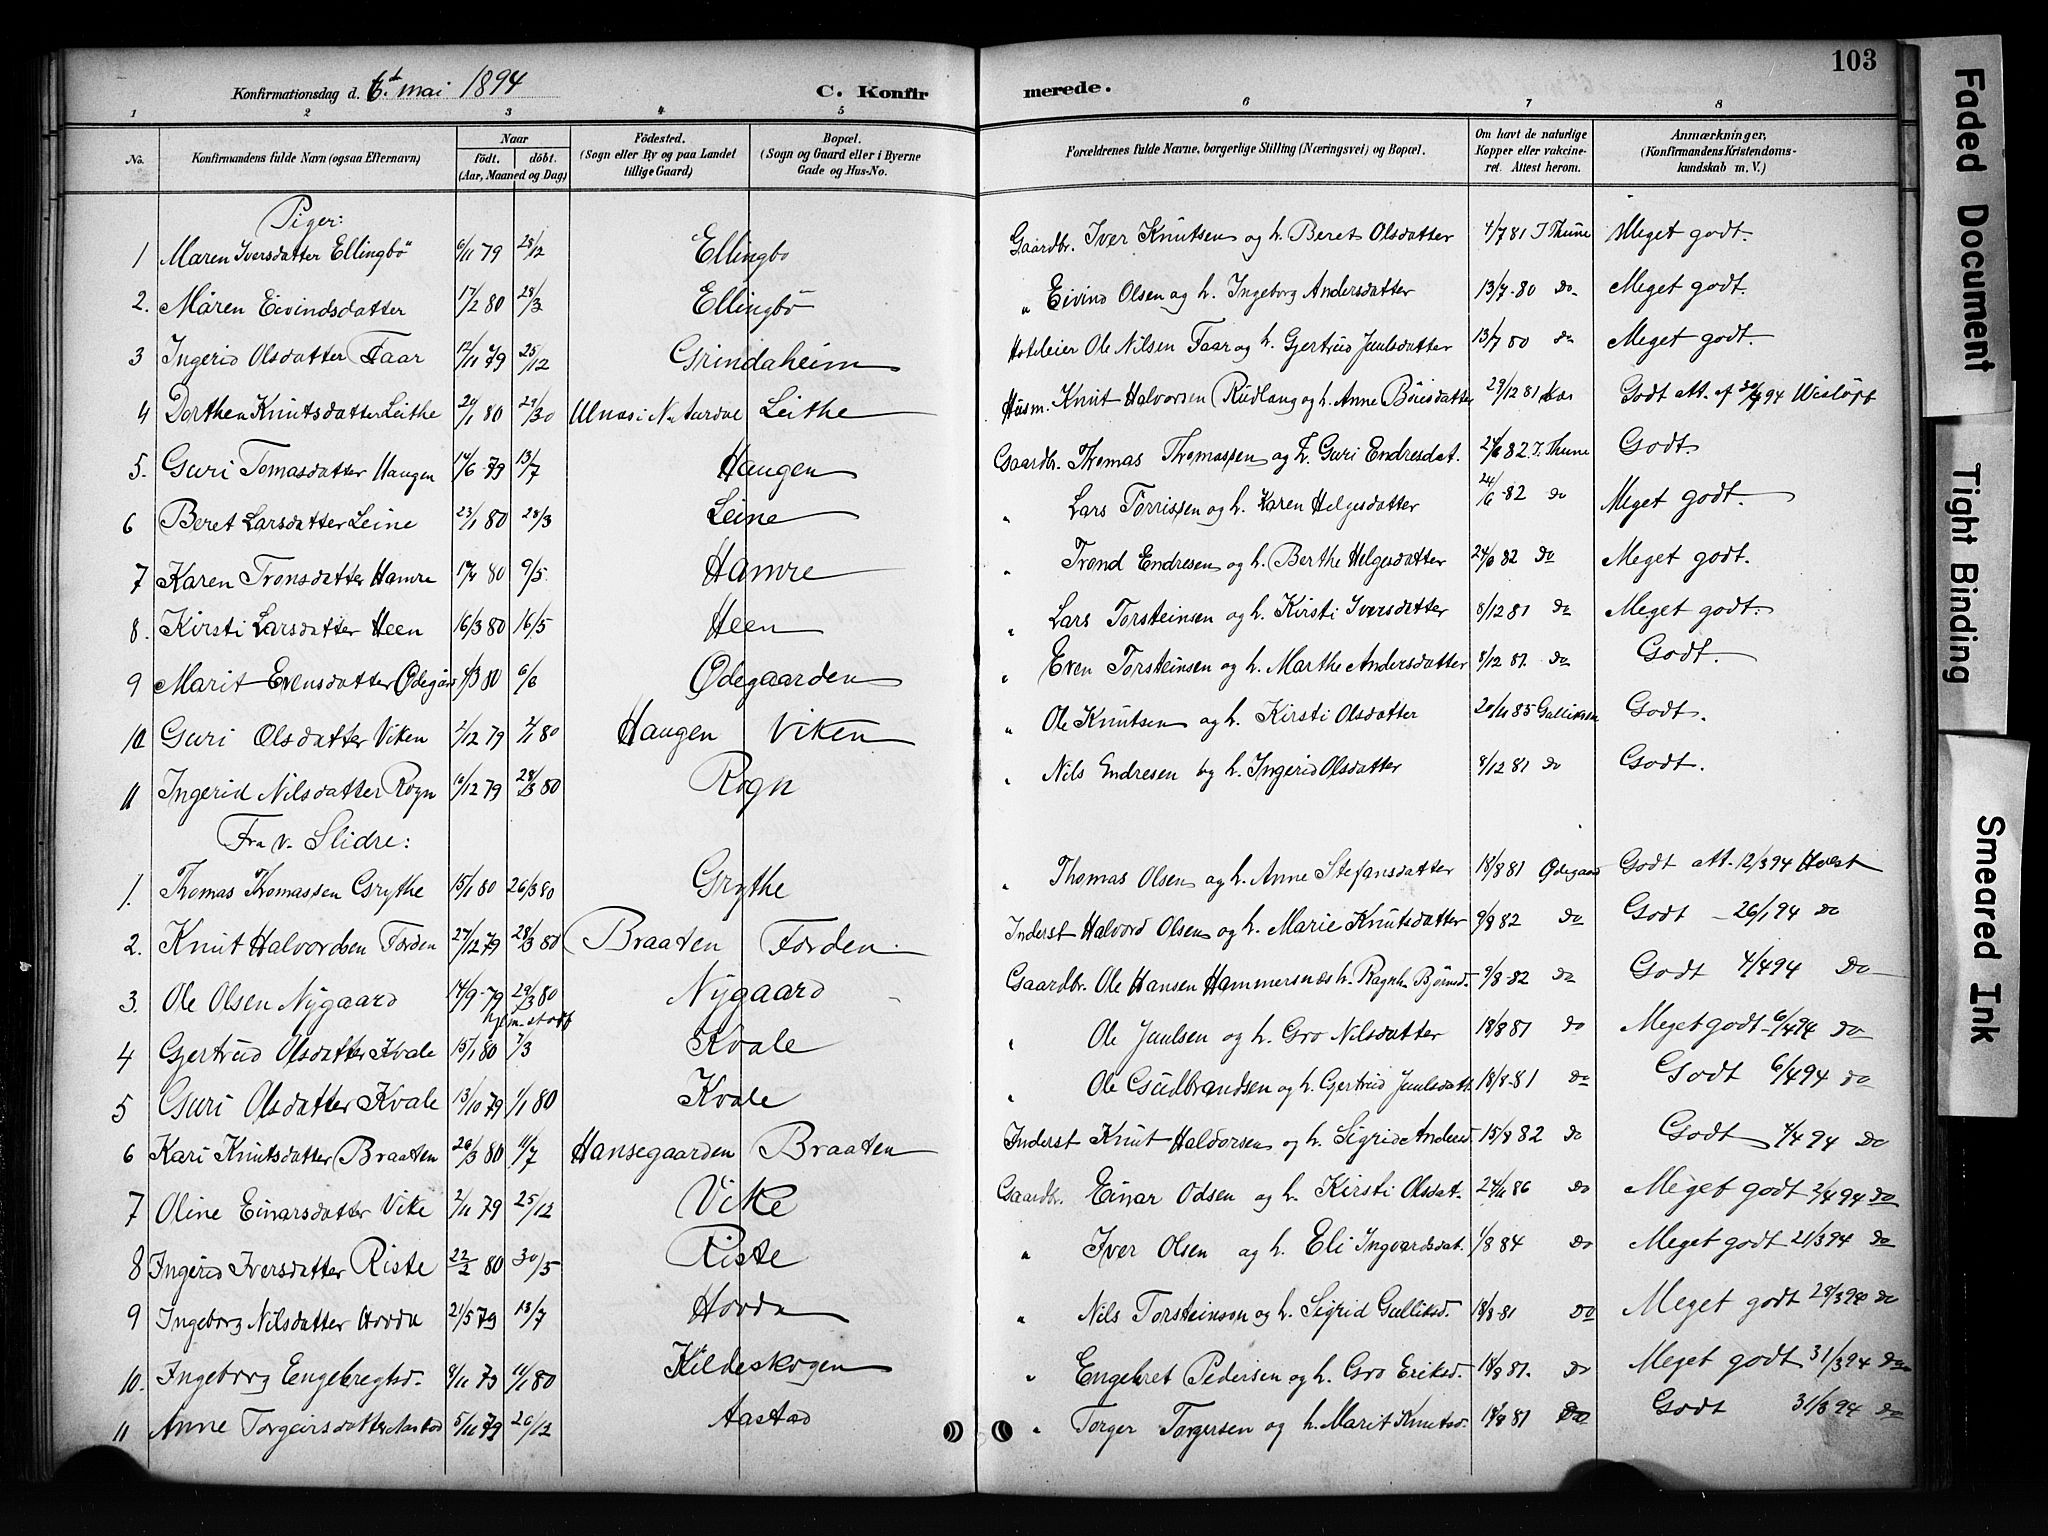 103
Konfirmationsdag d. 6t mai 1894 C. Konfirmerede.
1 2 3 4 5 6 7 8
No. Konfirmandens fulde Navn (ogsaa Efternavn) Naar födt. döbt. (Aar, Maaned og Dag) Födested. (Sogn eller By og paa Landet tillige Gaard) Bopæl. (Sogn og Gaard eller i Byerne Gade og Hus-No.) Forældrenes fulde Navne, borgerlige Stilling (Næringsvei) og Bopæl. Om havt de naturlige Kopper eller vakcineret. Attest herom. Anmærkninger, (Konfirmandens Kristendomskundskab m. V.)
Piger:
1 Maren Iversdatter Ellingbö 6/11 79 28/12 Ellingbö Gaardbr. Iver Knutsen og h. Beret Olsdatter 4/7 81 I Thune Meget godt.
2. Maren Eivindsdatter 17/2 80 28/3 Ellingbö " Eivind Olsen og h. Ingeborg Andersdatter 13/7 80 do Meget godt.
3 Ingerid Olsdatter Faar 12/11 79 25/12 Grindaheim Hoteleier Ole Nilsen Faar og h. Gjertrud Juulsdatter 13/7 80 do Meget godt.
4 Dorthea Knutsdatter Leithe 20/1 80 Ulnæs i N. Aurdal Leithe Husm. Knut Halvorsen Rudlang og h. Anne 29/12 81 Godt att. af
5. Guri Tomasdatter Haugen 14/6 79 13/7 Haugen Gaardbr. Thomas Thomassen og h. Guri Endresdat. 24/6 82 I. Thune Godt.
6 Beret Larsdatter Leine 23/1 80 28/3 Leine " Lars Torrissen og h. Karen Helgesdatter 24/6 82 do Meget godt.
7 Karen Tronsdatter Hamre 17/4 80 9/5 Hamre " Trond Endresen og h. Berthe Helgesdatter 24/6 82 do Meget godt.
8. Kirsti Larsdatter Heen 16/3 80 16/5 Heen " Lars Torsteinsen og h. Kirsti Iversdatter 8/12 81 do Meget godt.
9 Marit Evensdatter Ødegård 4/3 80 6/6 Ødegaarden " Even Torsteinsen og h. Marthe Andersdatter 8/12 81. do Godt.
10 Guri Olsdatter Viken 2/12 79 2/1 80 Haugen Viken " Ole Knutsen og h. Kirsti Olsdatter 20/11 85 Galliksen Godt.
11 Ingerid Nilsdatter Rogn 6/12 79 28/3 80 Rogn " Nils Endresen og h. Ingerid Olsdatter 8/12 81 do Godt.
Fra v. Slidre:
1. Thomas Thomassen Grythe 15/1 80 26/3 80 Grythe " Thomas Olsen og h. Anne Stefansdatter 18/8 81 Ødegaard Godt att. 12/3 94 Hvest
2. Knut Halvordsen Forden 27/12 79 28/3 80 Braaten Forden. Inderst Halvord Olsen og h. Marie Knutsdatter 9/8 82 do Godt - 26/1 94 do
3. Ole Olsen Nygaard 14/9 79 29/3 80 Nygaard Gaardbr. Ole Hansen Hammersnæs h. Ragnh. Björnsd. 9/8 82 do Godt 4/4 94 do
hjem.-st döbt
4 Gjertrud Olsdatter Kvale 15/1 80 7/3 Kvale " Ole Juulsen og h. Gro Nilsdatter 18/8 81 do Meget godt - 6/4 94 do
5 Guri Olsdatter Kvale 13/10 79 1/1 80 Kvale " Ole Gudbrandsen og h. Gjertrud Juulsdatt. 18/8 81 do Godt 6/4 94 do
6 Kari Knutsdatter Braaten 26/3 80 11/7 Hansegaarden Braaten Inderst Knut Haldorsen og h. Sigrid Andersd. 15/8 82 do Godt 4/4 94 do
7 Oline Einarsdatter Vike 2/11 79 25/12 Vike Gaardbr. Einar Odsen og h. Kirsti Olsdat. 24/11 86 do Meget godt 2/4 94 do
8 Ingerid Iversdatter Riste 22/2 80 30/5 Riste " Iver Olsen og h. Eli Ingvardsdat. 1/8 84 do Meget godt 21/3 94 do
9 Ingeborg Nilsdatter Hovda 21/5 79 13/7 Hovda " Nils Torsteinson og h. Sigrid Galliksd. 18/8 81 do Meget godt 28/3 94 do
10. Ingeborg Engebregtsd. 9/11 79 11/1 80 Kildeskogen " Engebret Pedersen og h. Gro Eriksd. 18/8 81. do Meget godt 31/3 94 do
11 Anne Torgeirsdatter Aastad 5/11 79 26/12 Aastad " Torger Torgersen og h. Marit Knutsd. 18/8 81 do Godt 31/3 94 do
Faded Document
Tight Binding
Smeared Ink